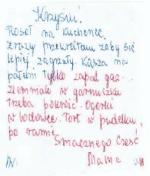 Krzysiu!
Rosół na kuchence,
zrazy przewróciłam żeby się
lepiej zagrzały. Kasza na
palem tylko zapal gaz.
Ziemniaki w garnuszku
trzeba polewać. Ogórki
w lodówce. Tort w pudełku,
po
Smacznego Cześć
Mama